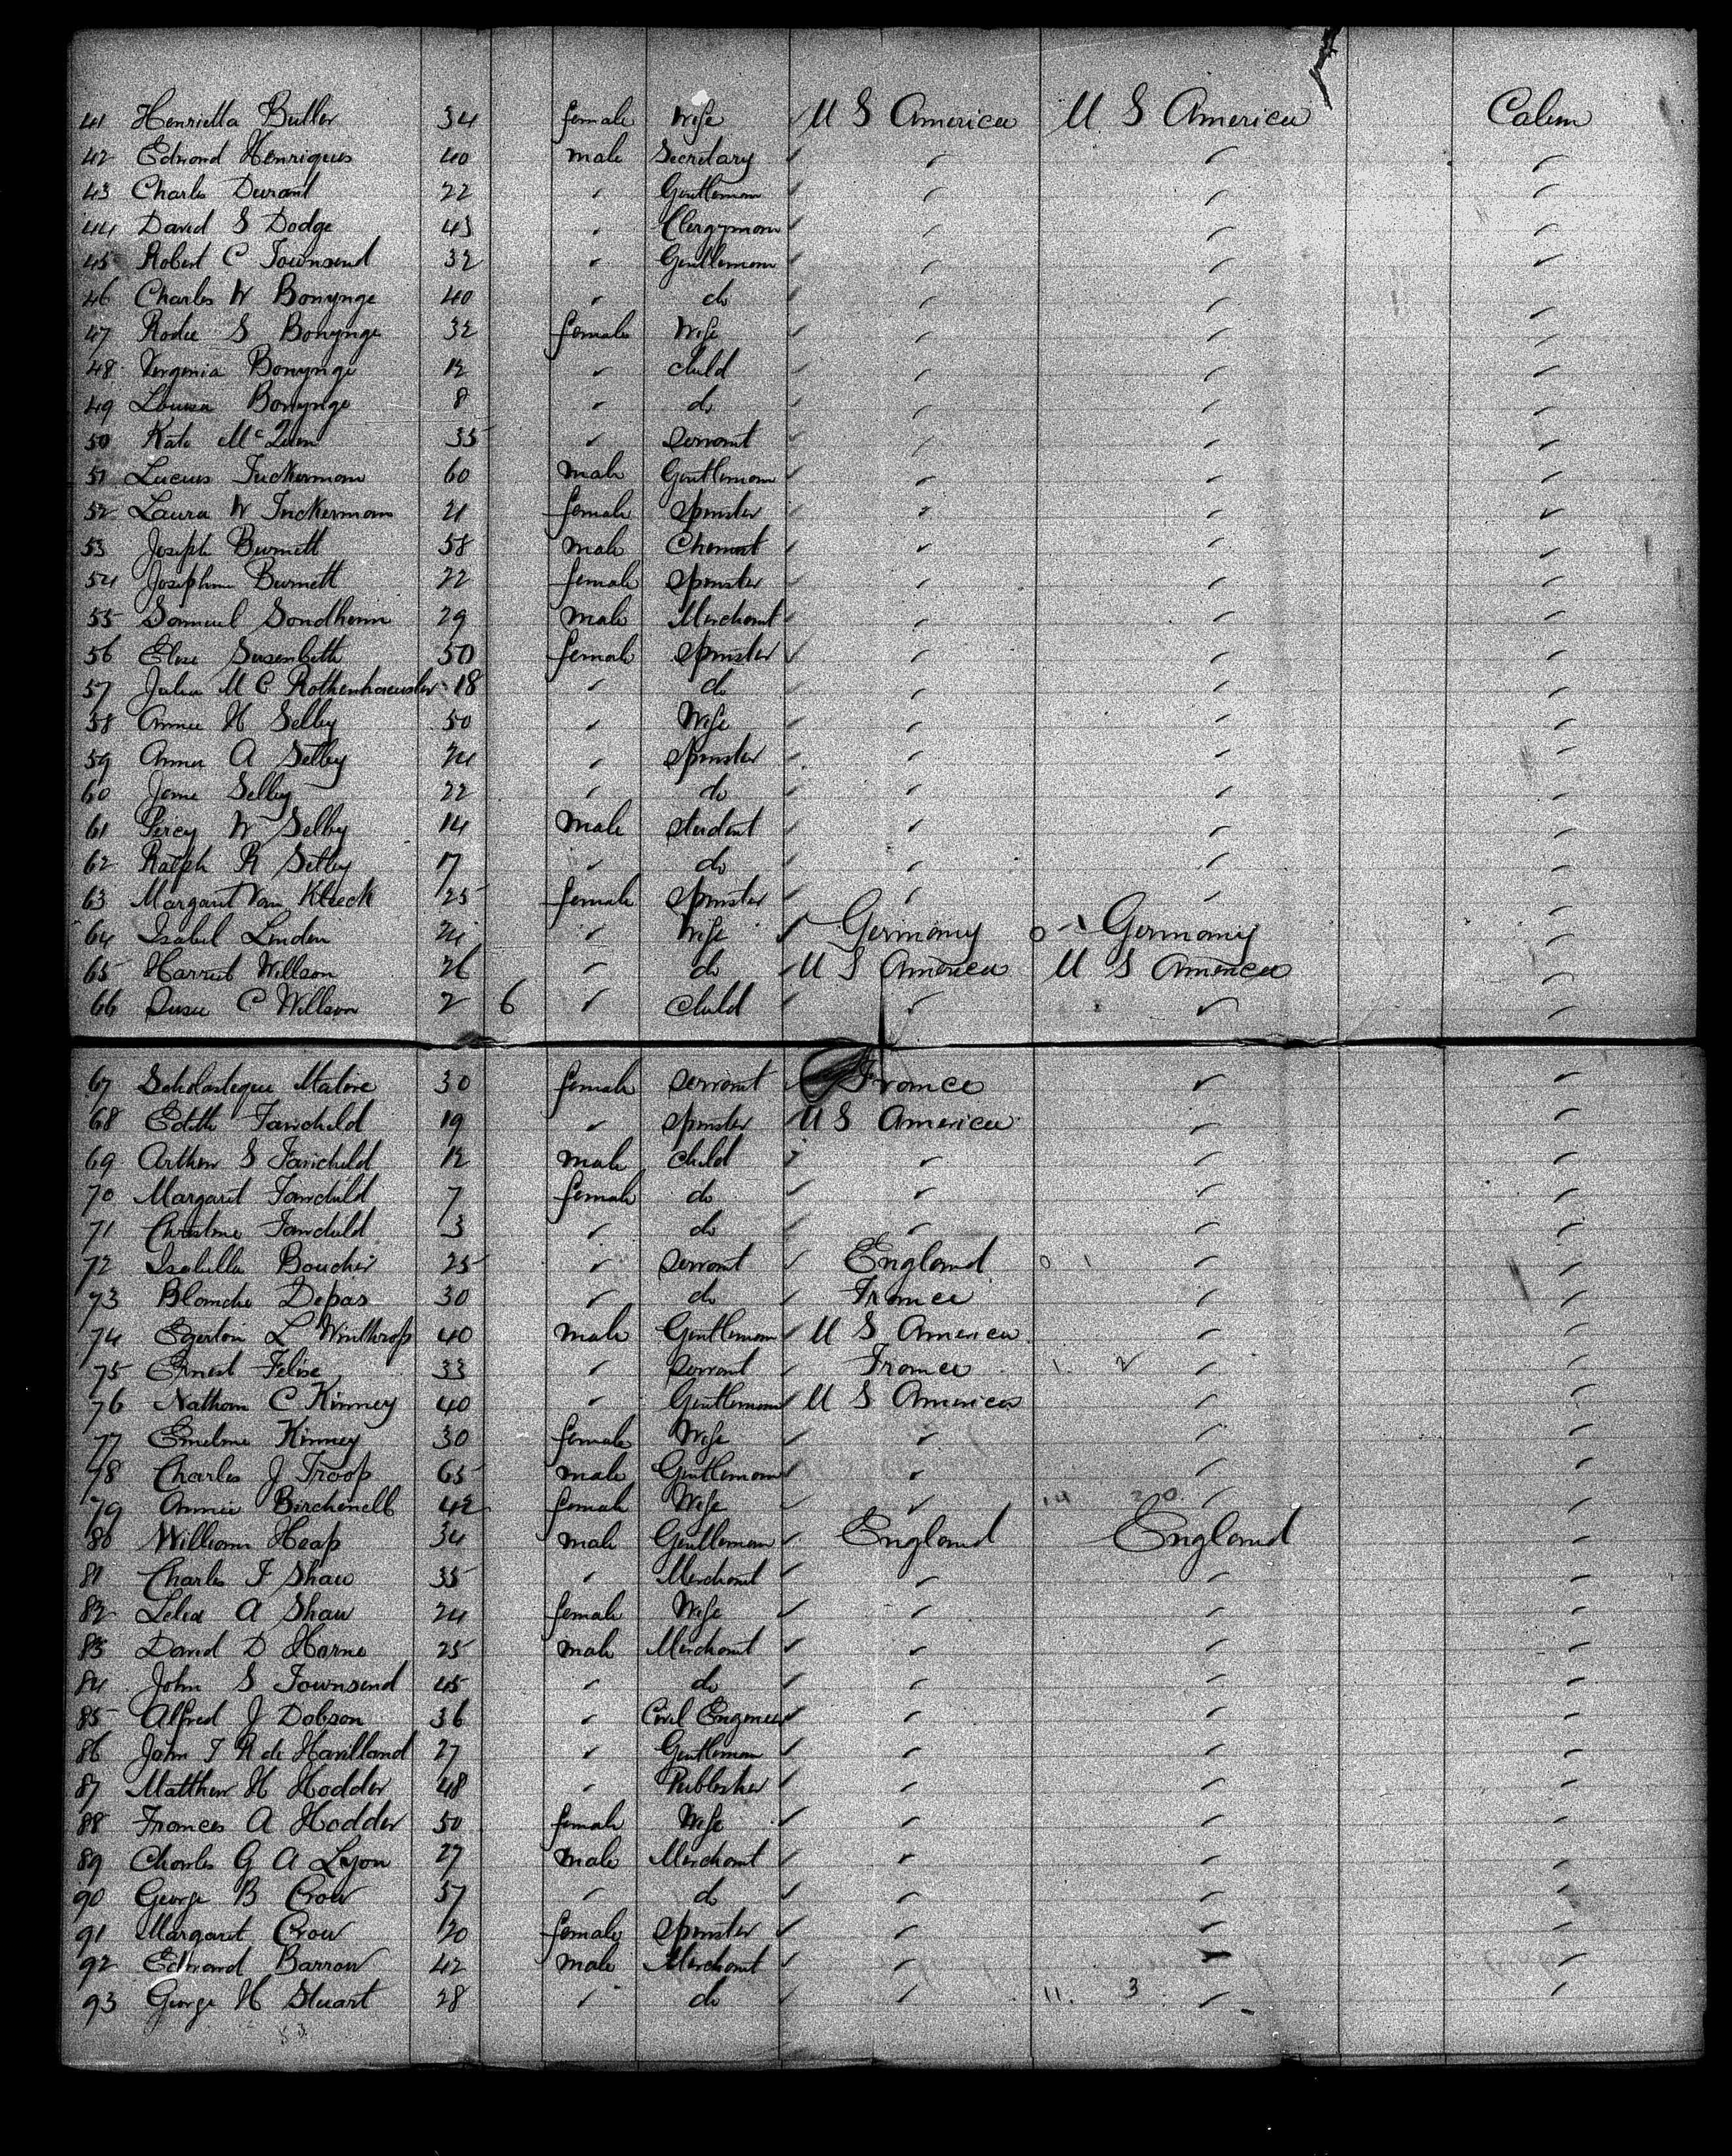 41 Henrietta Butler 34 female Wife U S America U S America Cabin
42 Edmond Henriques 40 male Secretary ✓ ✓ ✓
43 Charles Durant 22 ✓ Gentleman ✓ ✓ ✓
44 David S Dodge 43 ✓ Clergyman ✓ ✓ ✓
45 Robert C Townsend 32 ✓ Gentleman ✓ ✓ ✓
46 Charles W Bonynge 40 ✓ do ✓ ✓ ✓
47 Rodie S Bonynge 32 female Wife ✓ ✓ ✓
48 Virginia Bonynge 12 ✓ child ✓ ✓ ✓
49 Louisa Bonynge 8 ✓ do ✓ ✓ ✓
50 Kate 35 ✓ Servant ✓ ✓ ✓
51 Lucius Tuckerman 60 male Gentleman ✓ ✓ ✓
52 Laura W Tuckerman 21 female Spinster ✓ ✓ ✓
53 Joseph Burnett 58 male Chemist ✓ ✓ ✓
54 Josephine Burnett 22 female Spinster ✓ ✓ ✓
55 Samuel Sondheim 29 male Merchant ✓ ✓ ✓
56 Elise Susenbeth 50 female Spinster ✓ ✓ ✓
57 Julia M C Rothenhaeusler 18 ✓ do ✓ ✓ ✓
58 Annie H Selby 50 ✓ Wife ✓ ✓ ✓
59 Anna A Selby 24 ✓ Spinster ✓ ✓ ✓
60 Jane Selby 22 ✓ do ✓ ✓ ✓
61 Percy W Selby 14 male Student ✓ ✓ ✓
62 Ralph R Selby 17 ✓ do ✓ ✓ ✓
63 Margaret Van Kleeck 25 female Spinster ✓ ✓ ✓
64 Isabel Linden 24 ✓ Wife Germany 0 1 Germany ✓
65 Harriet Willson 26 ✓ do U S America U S America ✓
66 Susie C Willson 2 6 ✓ child ✓ ✓ ✓
67 Scholastique 30 female Servant France ✓ ✓
68 Edith Fairchild 19 ✓ Spinster U S America ✓ ✓
69 Arthur S Fairchild 12 male child ✓ ✓ ✓
70 Margaret Fairchild 7 female do ✓ ✓ ✓
71 Christine Fairchild 3 ✓ do ✓ ✓ ✓
72 Isabella Boucher 25 ✓ Servant England 0 1 ✓ ✓
73 Blanche Depas 30 ✓ do France ✓ ✓
74 Egerton L Winthrop 40 male Gentleman U S America ✓ ✓
75 Ernest Felise 33 ✓ Servant France 1 2 ✓ ✓
76 Nathan C Kinney 40 ✓ Gentleman U S America ✓ ✓
77 Emeline Kinney 30 female Wife ✓ ✓ ✓
78 Charles J Troop 65 male Gentleman ✓ ✓ ✓
79 Annie Birchenell 42 female Wife ✓ 14 20 ✓ ✓
80 William Heap 34 male Gentleman England England ✓
81 Charles F Shaw 35 ✓ Merchant ✓ ✓ ✓
82 Lelia A Shaw 24 female Wife ✓ ✓ ✓
83 David D Harne 25 male Merchant ✓ ✓ ✓
84 John S Townsend 45 ✓ do ✓ ✓ ✓
85 Alfred J Dobson 36 ✓ Civil Engineer ✓ ✓ ✓
86 John T R de Havilland 27 ✓ Gentleman ✓ ✓ ✓
87 Matthew H Hodder 48 ✓ Publisher ✓ ✓ ✓
88 Frances A Hodder 50 female Wife ✓ ✓ ✓
89 Charles G A Lyon 27 male Merchant ✓ ✓ ✓
90 George B Crow 57 ✓ do ✓ ✓ ✓
91 Margaret Crow 20 female Spinster ✓ ✓ ✓
92 Edmond Barrow 42 male Merchant ✓ ✓ ✓
93 George H Stuart 28 ✓ do ✓ 11 3 ✓ ✓
53